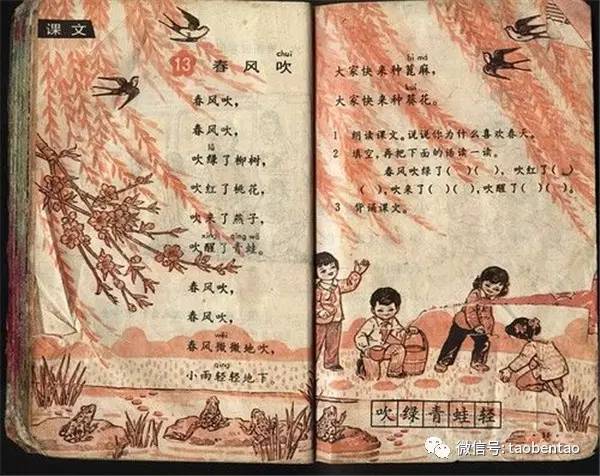 课文
chuī
13 春风吹
春风吹,
春风吹,
lǜ
吹绿了柳树,
吹红了桃花,
吹来了燕子,
xǐng qīng wā
吹醒了青蛙。
春风吹,
春风吹,
wēi
春风微微地吹,
qīng
小雨轻轻地下
bì má
大家快来种蓖麻,
kuí
大家快来种葵花。
1 朗读课文。说说你为什么喜欢春天。
2 填空,再把下面的话读一读。
春风吹绿了( )( ),吹红了( )
( ),吹来了( )( ),吹醒了( )( )。
3 背诵课文。
吹绿青蛙轻
微信号: taobentao